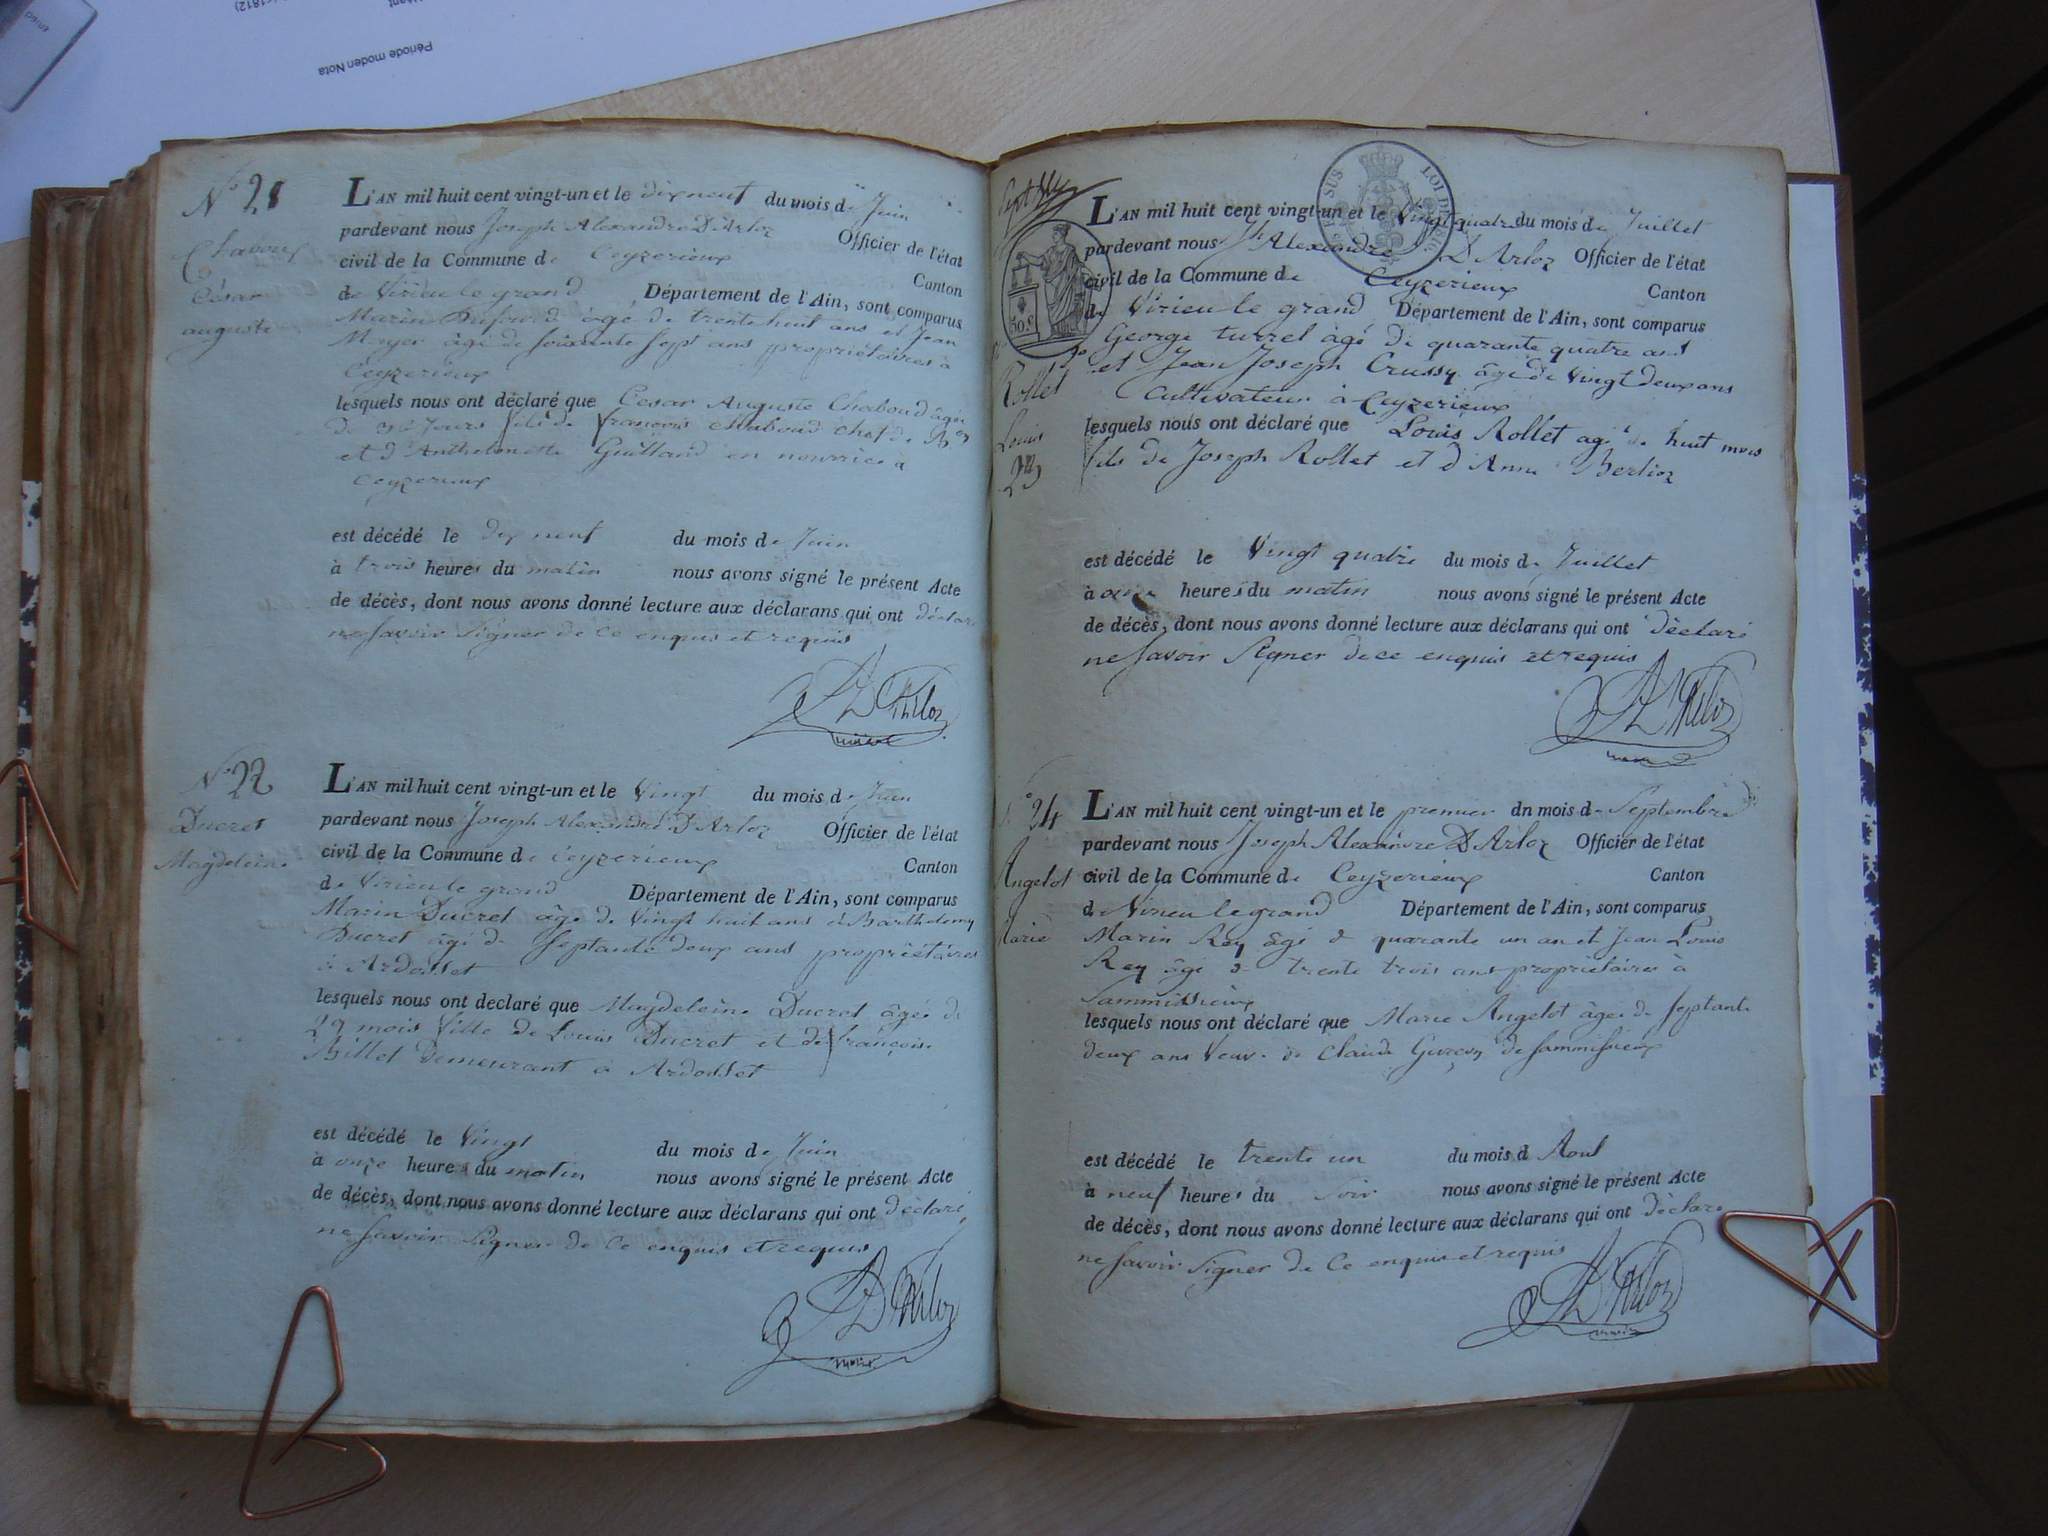 Période moden Nota
1812)
N° 21
Chaboud
César
auguste
L'AN mil huit cent vingt-un et le dix neuf du mois de Juin
pardevant nous Joseph Alexandre D'Arloz Officier de l'état
civil de la Commune de Ceyzerieux Canton
de Virieu le grand Département de l'Ain, sont comparus
Marin âgé de trente huit ans et Jean
Mayer âgé de soixante sept ans propriétaires à
Ceyzerieux
lesquels nous ont déclaré que Cesar Auguste Chaboud âgé
de Jours fils de françois Chaboud chef de
et d'Anthelmette Guilland en nourrice à
Ceyzerieux
est décédé le dix neuf du mois de Juin
à trois heures du matin nous avons signé le présent Acte
de décès, dont nous avons donné lecture aux déclarans qui ont déclaré
ne savoir signer de ce enquis et requis
D'Arloz
N° 22
Ducret
Magdeleine
L'AN mil huit cent vingt-un et le Vingt du mois de Juin
pardevant nous Joseph Alexandre D'Arloz Officier de l'état
civil de la Commune de Ceyzerieux Canton
de Virieu le grand Département de l'Ain, sont comparus
Marin Ducret âgé de Vingt huit ans et Barthelemy
Ducret âgé de septante deux ans propriétaires
à Ardosset
lesquels nous ont declaré que Magdeleine Ducret âgée de
29 mois fille de Louis Ducret et de françoise
Billet Demeurant a Ardosset
est décédé le Vingt du mois de Juin
à onze heures du matin nous avons signé le présent Acte
de décès, dont nous avons donné lecture aux déclarans qui ont déclaré
ne savoir signer de ce enquis et requis
D'Arloz
SUS LOI D
50 c
Rollet
Louis
23
L'AN mil huit cent vingt-un et le Vingt quatre du mois de Juillet
pardevant nous Jh Alexandre D'Arloz Officier de l'état
civil de la Commune de Ceyzerieux Canton
de Virieu le grand Département de l'Ain, sont comparus
George turrel âgé de quarante quatre ans
et Jean Joseph Crussy âgé de Vingt deux ans
Cultivateur à Ceyzerieux
lesquels nous ont déclaré que Louis Rollet agé de huit mois
fils de Joseph Rollet et d'Anne Berlioz
est décédé le Vingt quatre du mois de Juillet
à onze heures du matin nous avons signé le présent Acte
de décès, dont nous avons donné lecture aux déclarans qui ont déclaré
ne savoir signer de ce enquis et requis
D'Arloz
N° 24
Angelot
Marie
L'AN mil huit cent vingt-un et le premier dn mois de Septembre
pardevant nous Joseph Alexandre D'Arloz Officier de l'état
civil de la Commune de Ceyzerieux Canton
de Virieu le grand Département de l'Ain, sont comparus
Marin Rey âgé de quarante un an et Jean Louis
Rey âgé de trente trois ans propriétaires à
Sammissieux
lesquels nous ont déclaré que Marie Angelot âgée de septante
deux ans Veuve de Claude de sammissieux
est décédé le trente un du mois d Aout
à neuf heures du soir nous avons signé le présent Acte
de décès, dont nous avons donné lecture aux déclarans qui ont déclaré
ne savoir signer de ce enquis et requis
D'Arloz